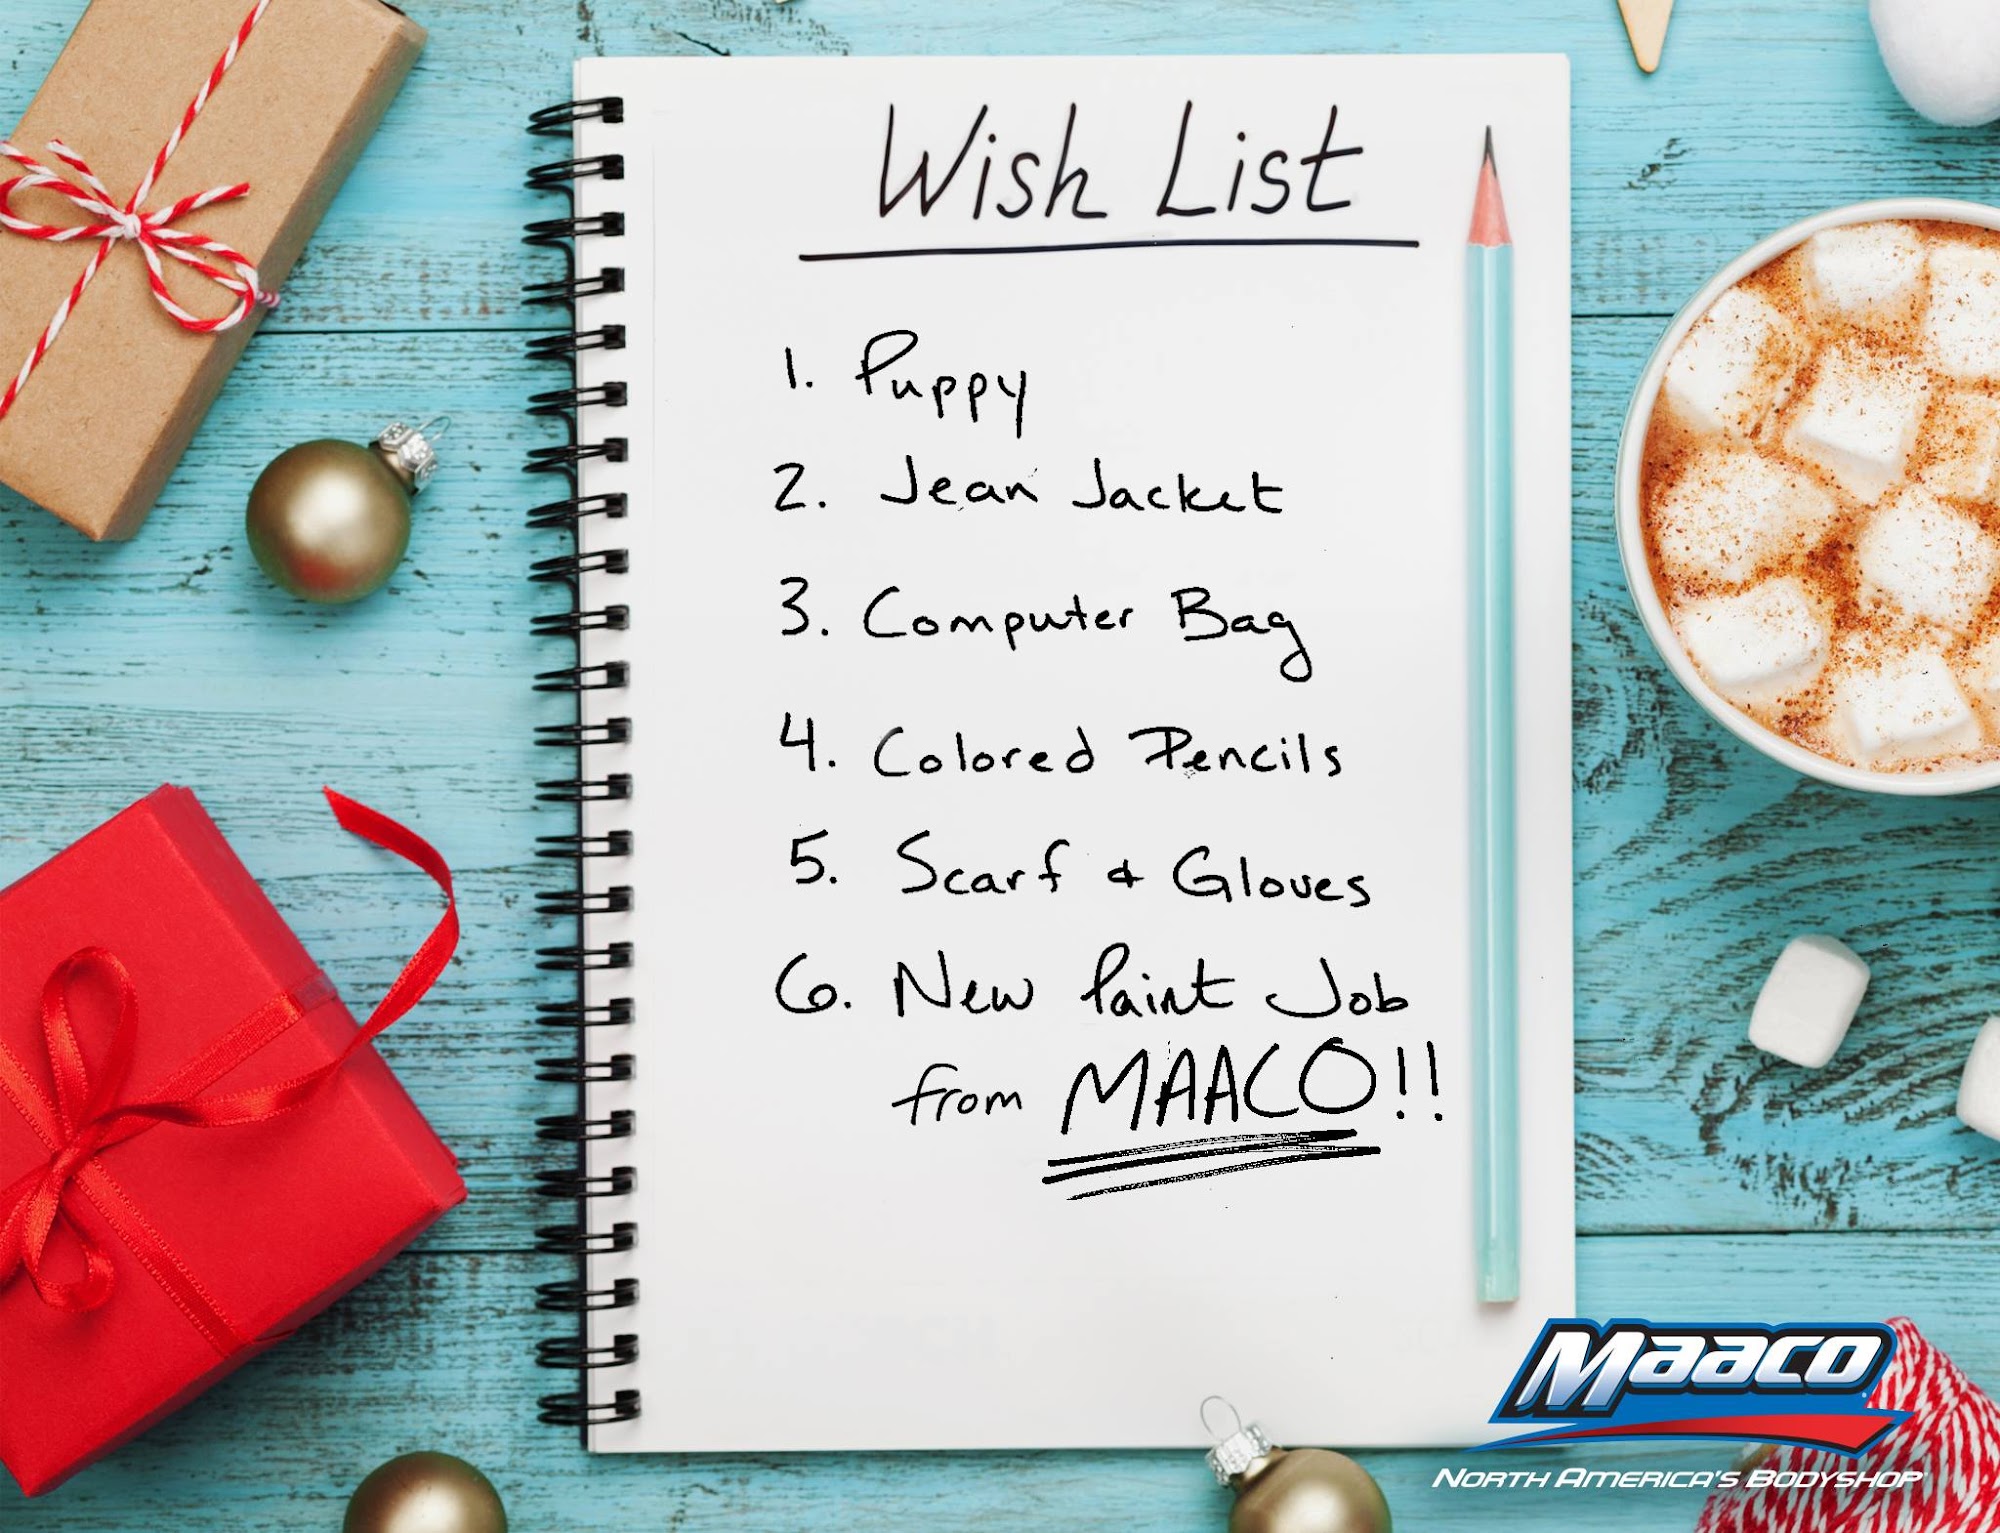 Wish List
1. Puppy
2. Jean Jacket
3. Computer Bag
4. Colored Pencils
5. Scarf & Gloves
6. New Paint Job
from MAACO!!
MAACO
NORTH AMERICA'S BODYSHOP